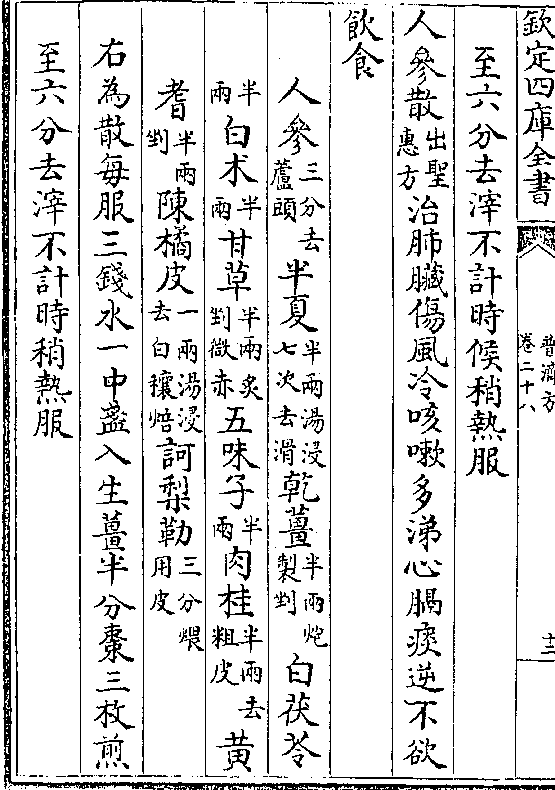 欽定四庫全書
普濟方
卷二十八
至六分去滓不計時候稍熱服
人參散出聖惠方治肺臟傷風冷咳嗽多涕心膈痰逆不欲
飲食
人參三分去蘆頭半夏半兩湯浸七次去滑乾薑半兩炮製剉白茯苓
半兩白术半兩甘草半兩炙剉微赤五味子半兩肉桂半兩去粗皮黃
耆半兩剉陳橘皮一兩湯浸去白穰焙訶梨勒三分煨用皮
右為散每服三錢水一中盞入生薑半分棗三枚煎
至六分去滓不計時稍熱服